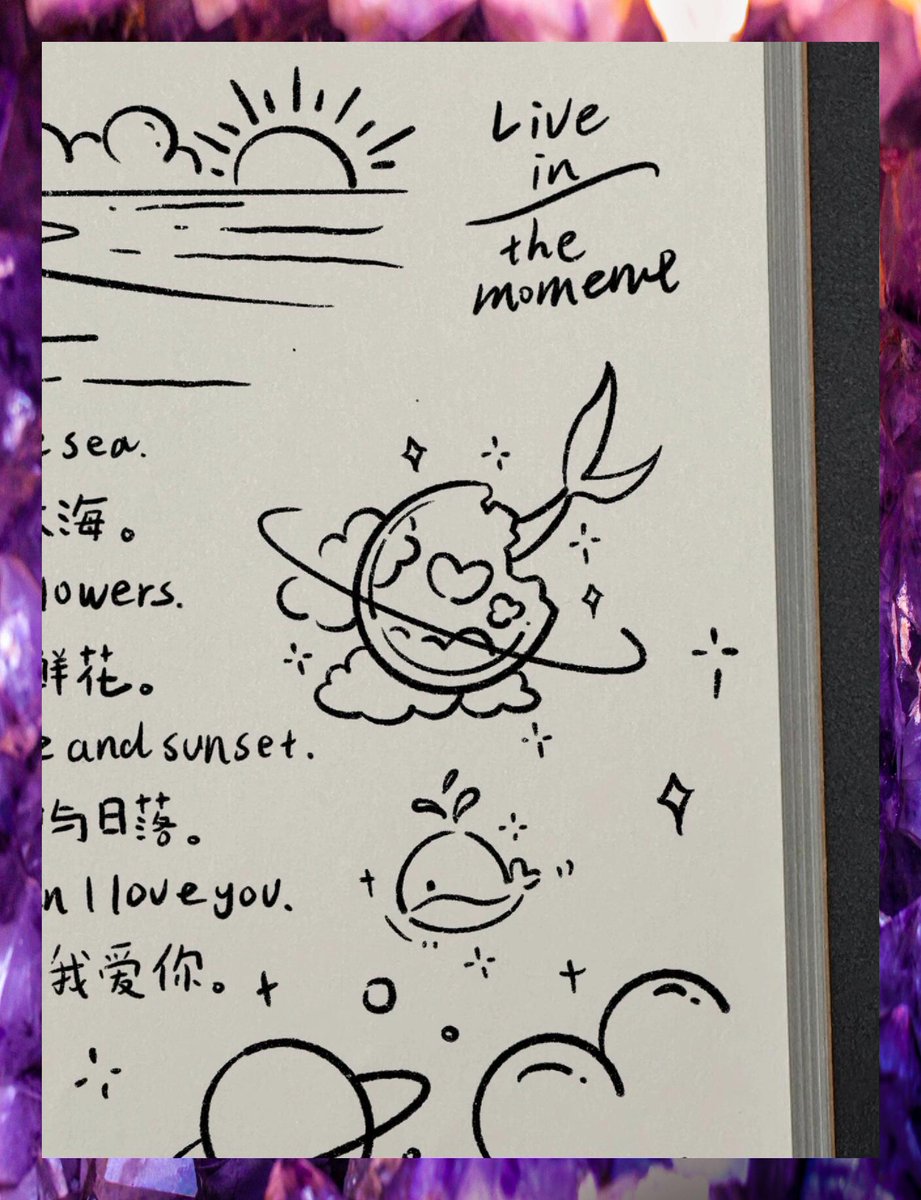 Live
in
the
momeme
sea.
海。
lowers.
鲜花。
and sunset.
与日落。
n I love you.
我爱你。